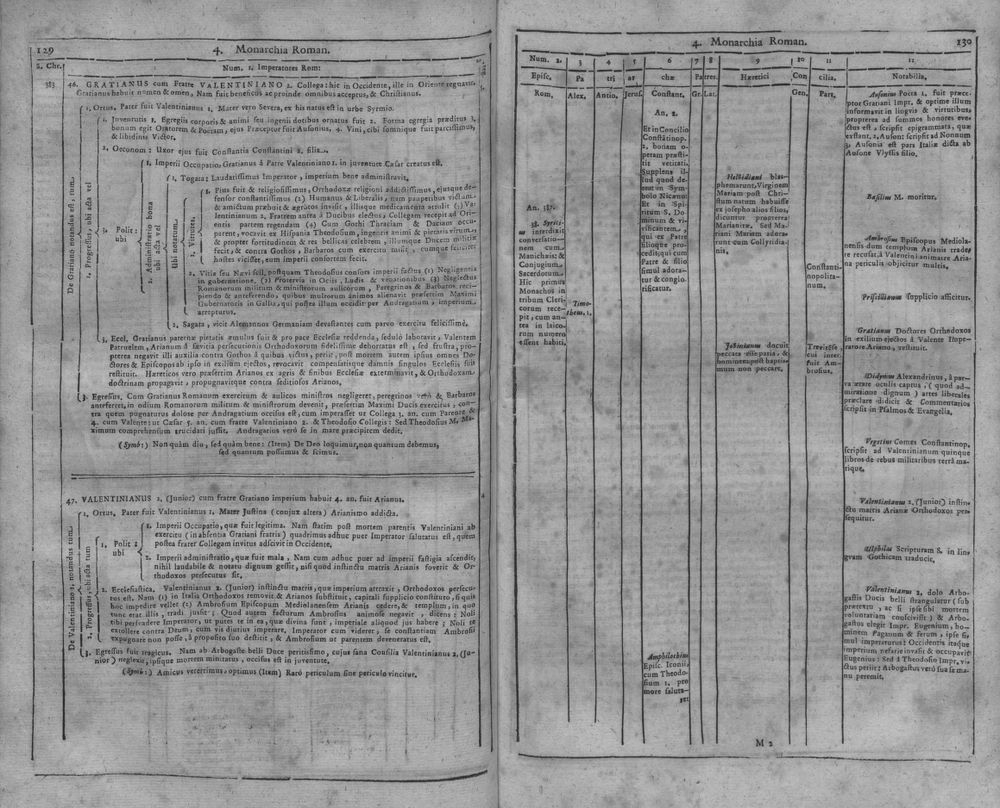 129
4. Monarchia Roman.
S. Chr.
Num. 1. Imperatores Rom:
383
46. GRATIANUS cum Fratre VALENTINIANO 2. Collega: hic in Occidente, ille in Oriente regnavit.
Gratianus habuit nomen & omen, Nam fuit beneficus ac proinde omnibus acceptus, & Christianus.
De Gratiano notandus est, tum,
1. Ortus. Pater fuit Valentinianus 1. Mater vero Severa, ex his natus est in urbe Syrmio.
2. Progressus, ubi acta vel
1. Juventutis 1. Egregiis corporis & animi seu ingenii dotibus ornatus fuit 2. Forma egregia præditus 3.
bonum egit Oratorem & Poëtam, ejus Præceptor fuit Ausonius, 4. Vini, cibi somnique fuit parcissimus,
& libidinis Victor.
2. Oeconom: Uxor ejus fuit Constantia Constantini 2. filia.
3. Polit:
ubi
1. Imperii Occupatio: Gratianus à Patre Valentiniano 1. in juventute Cæsar creatus est.
2. Administratio bona
ubi acta vel
1. Togata: Laudatissimus Imperator, imperium bene administravit.
Ubi notatum,
1. Virtutes:
1. Pius fuit & religiosissimus, Orthodoxæ religioni addictissimus, ejusque de-
fensor constantissimus (2) Humanus & Liberalis, nam pauperibus victum
& amictum præbuit & ægrotos invisit, illisque medicamenta attulit (3) Va-
lentinianum 2. Fratrem antea à Ducibus electus, Collegam recepit ad Ori-
entis partem regendam (4) Cum Gothi Thraciam & Daciam occu-
parent, vocavit ex Hispania Theodosium, ingentis animi & pietatis virum,
& propter fortitudinem & res bellicas celebrem, illumque Ducem militiæ
fecit, & contra Gothos, Barbaros cum exercitu misit, cumque feliciter
hostes vicisset, eum imperii consortem fecit.
2. Vitia seu Nævi sell. postquam Theodosius consors imperii factus (1) Negligentia
in gubernatione. (2) Protervia in Ociis, Ludis & venationibus (3) Neglectus
Romanorum militum & ministrorum aulicorum, Peregrinos & Barbaros reci-
piendo & anteferendo, quibus multorum animos alienavit præsertim Maximi
Gubernatoris in Gallia, qui postea illum occidit per Andragatium, imperium,
arrepturus.
2. Sagata, vicit Alemannos Germaniam devastantes cum parvo exercitu felicissimè.
3. Eccl. Gratianus paternæ pietatis æmulus fuit & pro pace Ecclesiæ reddenda, sedulò laboravit, Valentem
Patruelem, Arianum à sævitia persecutionis Orthodoxorum fidelissime dehortatus est, sed frustra, pro-
pterea negavit illi auxilia contra Gothos à quibus victus, periit, post mortem autem ipsius omnes Do-
ctores & Episcopos ab ipso in exilium ejectos, revocavit compensatisque damnis singulos Ecclesiis suis
restituit. Hæreticos vero præsertim Arianos ex agris & finibus Ecclesiæ exterminavit, & Orthodoxam
doctrinam propagavit, propugnavitque contra seditiosos Arianos.
3. Egressus. Cum Gratianus Romanum exercitum & aulicos ministros negligeret, peregrinos verò & Barbaros
anteferret, in odium Romanorum militum & ministrorum devenit, præsertim Maximi Ducis exercitus, con-
tra quem pugnaturus dolose per Andragatium occisus est, cum imperasset ut Collega 3. an. cum Parente &
4. cum Valente: ut Cæsar 5. an. cum fratre Valentiniano 2. & Theodosio Collegis: Sed Theodosius M. Ma-
ximum comprehensum trucidari jussit. Andragatius verò se in mare præcipitem dedit.
(Symb:) Non quàm diu, sed quàm bene: (Item) De Deo loquimur, non quantum debemus,
sed quantum possumus & scimus.
47. VALENTINIANUS 2. (Junior) cum fratre Gratiano imperium habuit 4. an. fuit Arianus.
De Valentiniano 2. notandus tum,
1. Ortus. Pater fuit Valentinianus 1. Mater Justina (conjux altera) Arianismo addicta.
2. Progressus, ubi acta tum
1. Polit:
ubi
1. Imperii Occupatio, quæ fuit legitima. Nam statim post mortem parentis Valentiniani ab
exercitu (in absentia Gratiani fratris) quadrimus adhuc puer Imperator salutatus est, quem
postea frater Collegam invitus adscivit in Occidente.
2. Imperii administratio, quæ fuit mala, Nam cum adhuc puer ad imperii fastigia ascendit,
nihil laudabile & notatu dignum gessit, nisi quòd instinctu matris Arianis foverit & Or-
thodoxos persecutus sit.
2. Ecclesiastica. Valentinianus 2. (Junior) instinctu matris, quæ imperium attraxit, Orthodoxos persecu-
tus est. Nam (1) in Italia Orthodoxos removit & Arianos substituit, capitali supplicio constituto, si quis
hoc impedire vellet (2) Ambrosium Episcopum Mediolanensem Arianis cedere, & templum, in quo
tunc erat illis, tradi jussit; Quod autem facturum Ambrosius animosè negavit, dicens: Noli
tibi persvadere Imperator, ut putes te in ea, quæ divina sunt, imperiale aliquod jus habere; Noli te
extollere contra Deum, cum vis diutius imperare. Imperator cum videret, se constantiam Ambrosii
expugnare non posse, à proposito suo destitit, & Ambrosium ut parentem deveneratus est.
3. Egressus fuit tragicus. Nam ab Arbogaste belli Duce peritissimo, cujus sana Consilia Valentinianus 2. (Ju-
nior) neglexit, ipsique mortem minitatus, occisus est in juventute.
(Symb:) Amicus veterrimus, optimus (Item) Rarò periculum sine periculo vincitur.
4. Monarchia Roman.
130
Num. 2. 3 4 5 6 7 8 9 10 11 12
Episc. Pa tri ar chæ Patres. Hæretici Con cilia. Notabilia,
Rom, Alex. Antio. Jerus. Constant. Gr. Lat. Gen. Part.
An. 387.
38. Syrici-
us interdixit
conversatio-
nem cum
Manichæis: &
Conjugium,
Sacerdotum.
Hic primus
Monachos in
tribum Cleri-
corum rece-
pit, cum an-
tea in laico-
rum numero
essent habiti.
Timo-
theus. 1.
An. 2.
Et in Concilio
Constantinop.
2. bonam o-
peram præsti-
tit veritati.
Supplens il-
lud quod de-
est in Sym-
bolo Nicæno:
Et in Spi-
ritum S. Do-
minum & vi-
vificantem,
qui ex Patre
filioque pro-
cedit; qui cum
Patre & filio
simul adora-
tur & conglo-
rificatur.
Amphilochius
Episc. Iconii,
cum Theodo-
sium 1. pro
more saluta-
ret
Helvidiani blas-
phemarunt, Virginem
Mariam post Chri-
stum natum habuisse
ex josepho alios filios,
dicuntur propterea
Marianitæ. Sed Ma-
riani Mariam adora-
runt cum Collyridia-
nis.
Jovinianus docuit
peccata esse paria, &
hominem post baptis-
mum non peccare.
Constanti-
nopolita-
num.
Trevirëse,
cui inter.
fuit Am-
brosius.
Ausonius Poëta 1. fuit præce-
ptor Gratiani Impr. & optime illum
informavit in lingvis & virtutibus,
propterea ad summos honores eve-
ctus est, scripsit epigrammata, quæ
exstant. 2. Ausoni scripsit ad Nonnum
3. Ausonia est pars Italiæ dicta ab
Ausone Ulyssis filio.
Basilius M. moritur.
Ambrosius Episcopus Mediola-
nensis dum templum Arianis trade-
re recusat, à Valentini animatre Aria-
na periculis objicitur multis,
Priscillianus supplicio afficitur.
Gratianus Doctores Orthodoxos
in exilium ejectos à Valente Impe-
ratore Ariano, restituit.
Didymus Alexandrinus, à par-
va ætate oculis captus, (quod ad-
miratione dignum) artes liberales
præclare didicit & Commentarios
scripsit in Psalmos & Evangelia.
Vegetius Comes Constantinop.
scripsit ad Valentinianum quinque
libros de rebus militaribus terrâ ma-
rique.
Valentinianus 2. (Junior) instin-
ctu matris Arianæ Orthodoxos per-
sequitur.
Ulphilas Scripturam S. in lin-
gvam Gothicam traducit.
Valentinianus 2. dolo Arbo-
gastis Ducis belli strangulatur (sub
prætextu, ac si ipse sibi mortem
voluntariam conscivisset) & Arbo-
gastus elegit Impr. Eugenium, ho-
minem Paganum & ferum, ipse si-
mul imperaturus: Occidentis itaque
imperium nefarie invasit & occupavit
Eugenius: Sed à Theodosio Impr. vi-
ctus periit: Arbogastus verò sua se ma-
nu peremit.
M 2